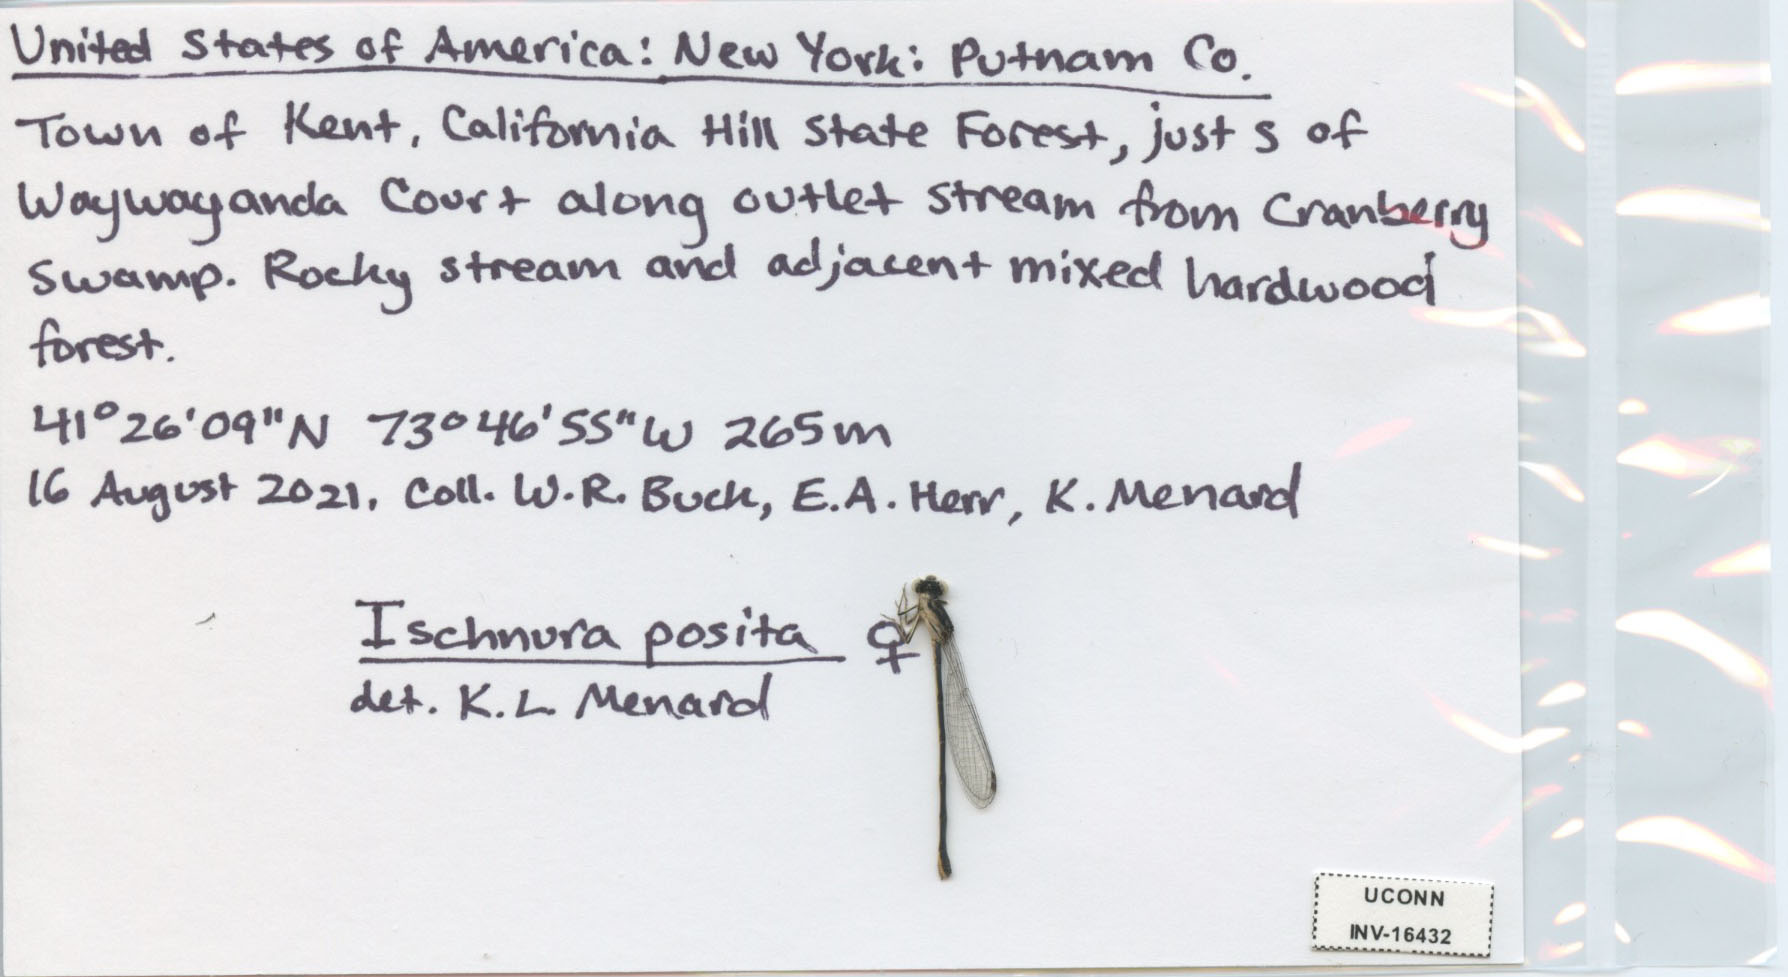 United States of America: New York: Putnam Co.
Town of Kent, California Hill State Forest, just S of
Waywayanda Court along outlet stream from Cranberry
Swamp. Rocky stream and adjacent mixed hardwood
forest.
41°26'09"N 73°46'55"W 265m
16 August 2021, Coll. W.R. Buck, E.A. Herr, K. Menard
Ischnura posita ♀
det. K.L. Menard
UCONN
INV-16432